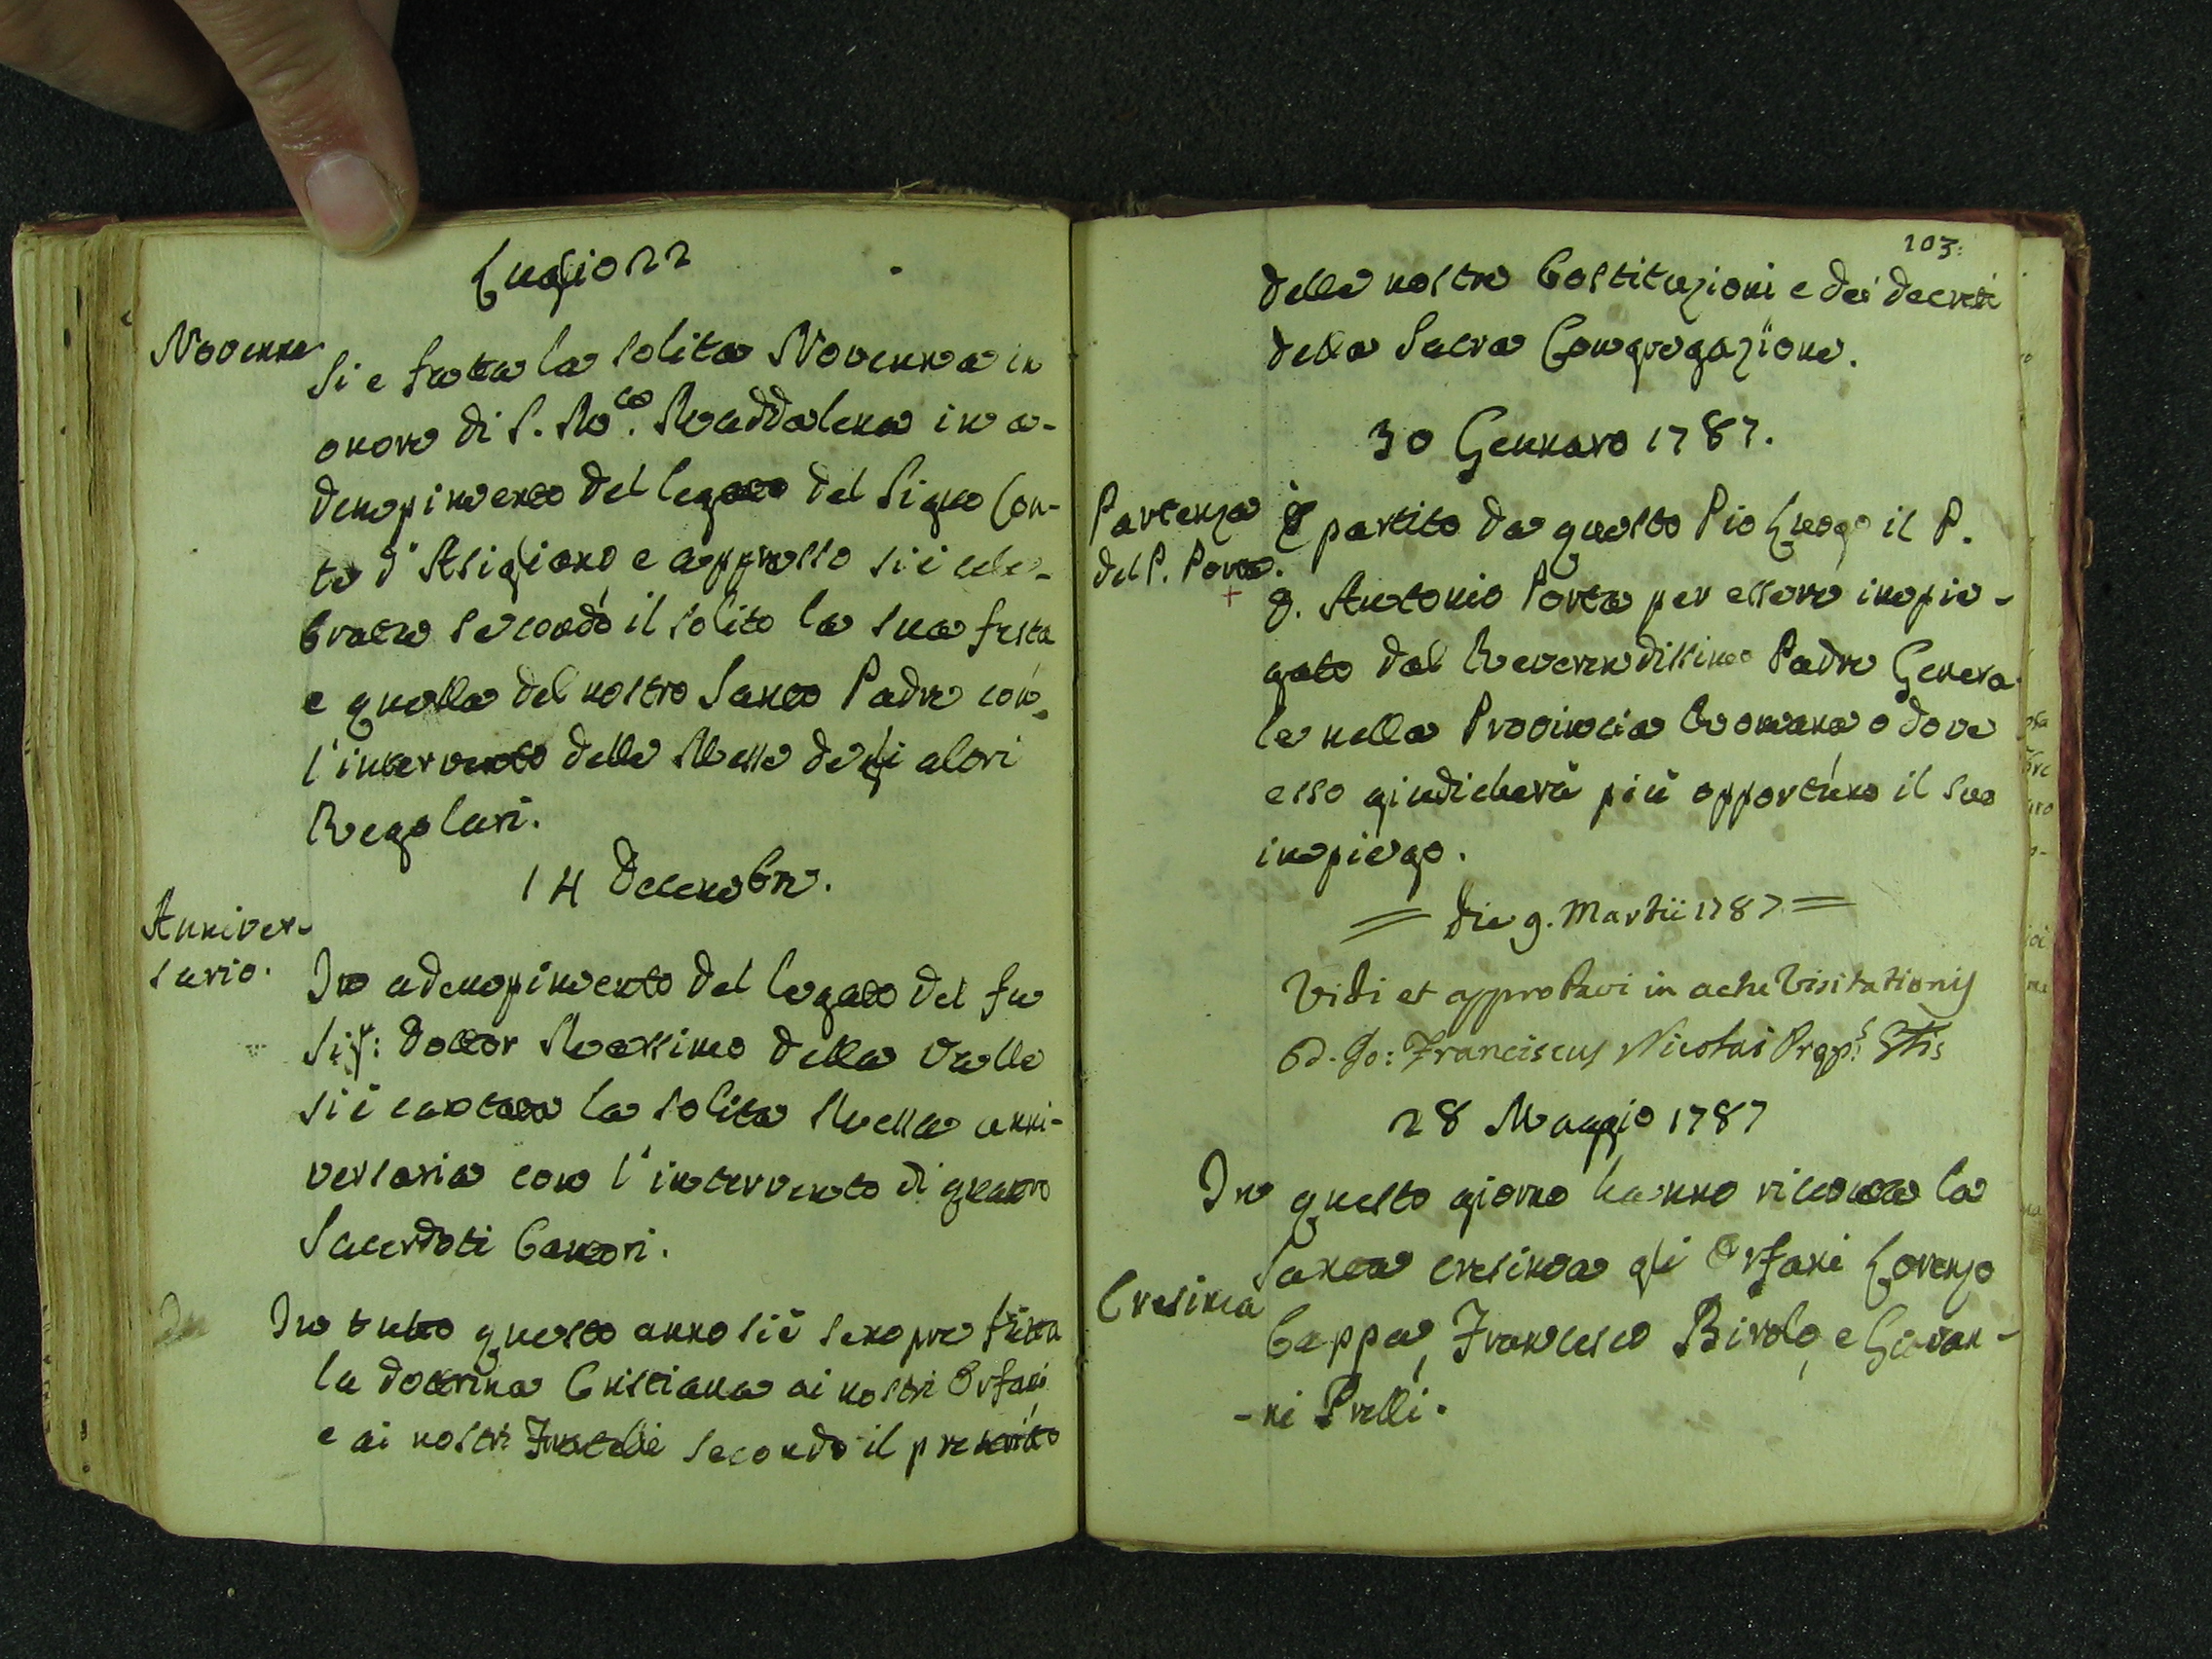 Luglio 22
Novenna
Si e fatta la solita Novenna in
onore di S. Ma. Maddalena in a-
dempimento del legato del Signo Con-
te d'Asigliano, e appresso si è cele-
brata secondo il solito la sua festa
e quella del nostro Santo Padre con
l'intervento delle Messe degli altri
Regolari.
14 Decembre.
Anniver-
sario.
In adempimento del legato del fu
Sig: dottor Massimo della Valle
si è cantata la solita Messa anni-
versaria con l'intervento di quattro
Sacerdoti Cantori.
In tutto questo anno si è sempre fatta
la dottrina Cristiana ai nostri Orfani
e ai nostri Fratelli secondo il prescritto
103.
delle nostre Costituzioni e dei decreti
della Sacra Congregazione.
30 Gennaro 1787.
Partenza
del P. Porta.
+
È partito da questo Pio Luogo il P.
D. Antonio Porta per essere impie-
gato dal Reverendissimo Padre Genera
le nella Provincia Romana o dove
esso giudicherà più opportuno il suo
impiego.
= Die 9. Martii 1787 =
Vidi et approbavi in actu Visitationis
D. Jo: Franciscus Nicolai Prep.s
28 Maggio 1787
In questo giorno hanno ricevuta la
Cresima
Santa cresima gli Orfani Lorenzo
Cappa, Francesco Birolo, e Giovan-
-ni Prelli.